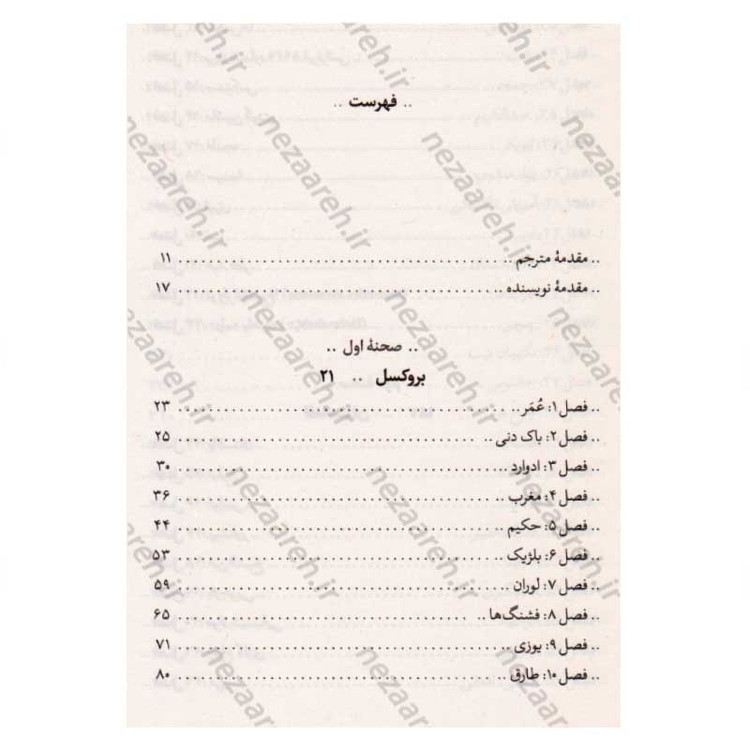 .. فهرست ..
.. مقدمهٔ مترجم ........ ۱۱
.. مقدمهٔ نویسنده ........ ۱۷
.. صحنهٔ اول ..
بروکسل .. ۲۱
.. فصل ۱: عُمَر ........ ۲۳
.. فصل ۲: باک دنی ........ ۲۵
.. فصل ۳: ادوارد ........ ۳۰
.. فصل ۴: مغرب ........ ۳۶
.. فصل ۵: حکیم ........ ۴۴
.. فصل ۶: بلژیک ........ ۵۳
.. فصل ۷: لوران ........ ۵۹
.. فصل ۸: فشنگ‌ها ........ ۶۵
.. فصل ۹: یوزی ........ ۷۱
.. فصل ۱۰: طارق ........ ۸۰
nezaareh.ir